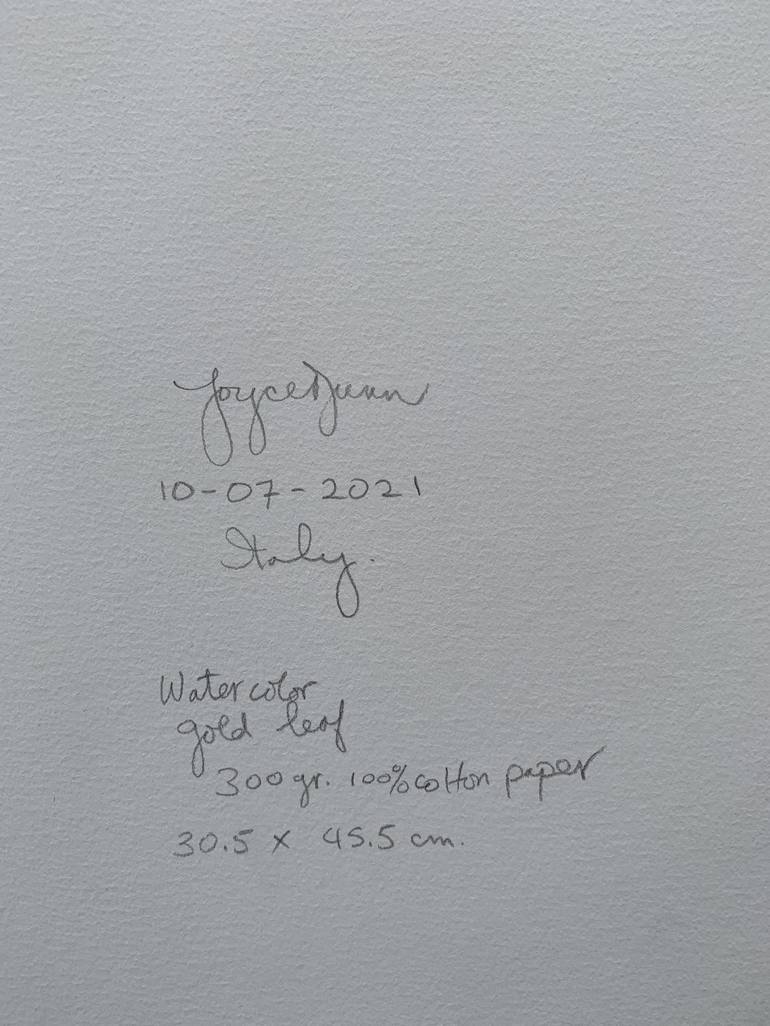 Joyce
10-07-2021
Italy.
Watercolor
gold leaf
300 gr. 100% cotton paper
30.5 x 45.5 cm.